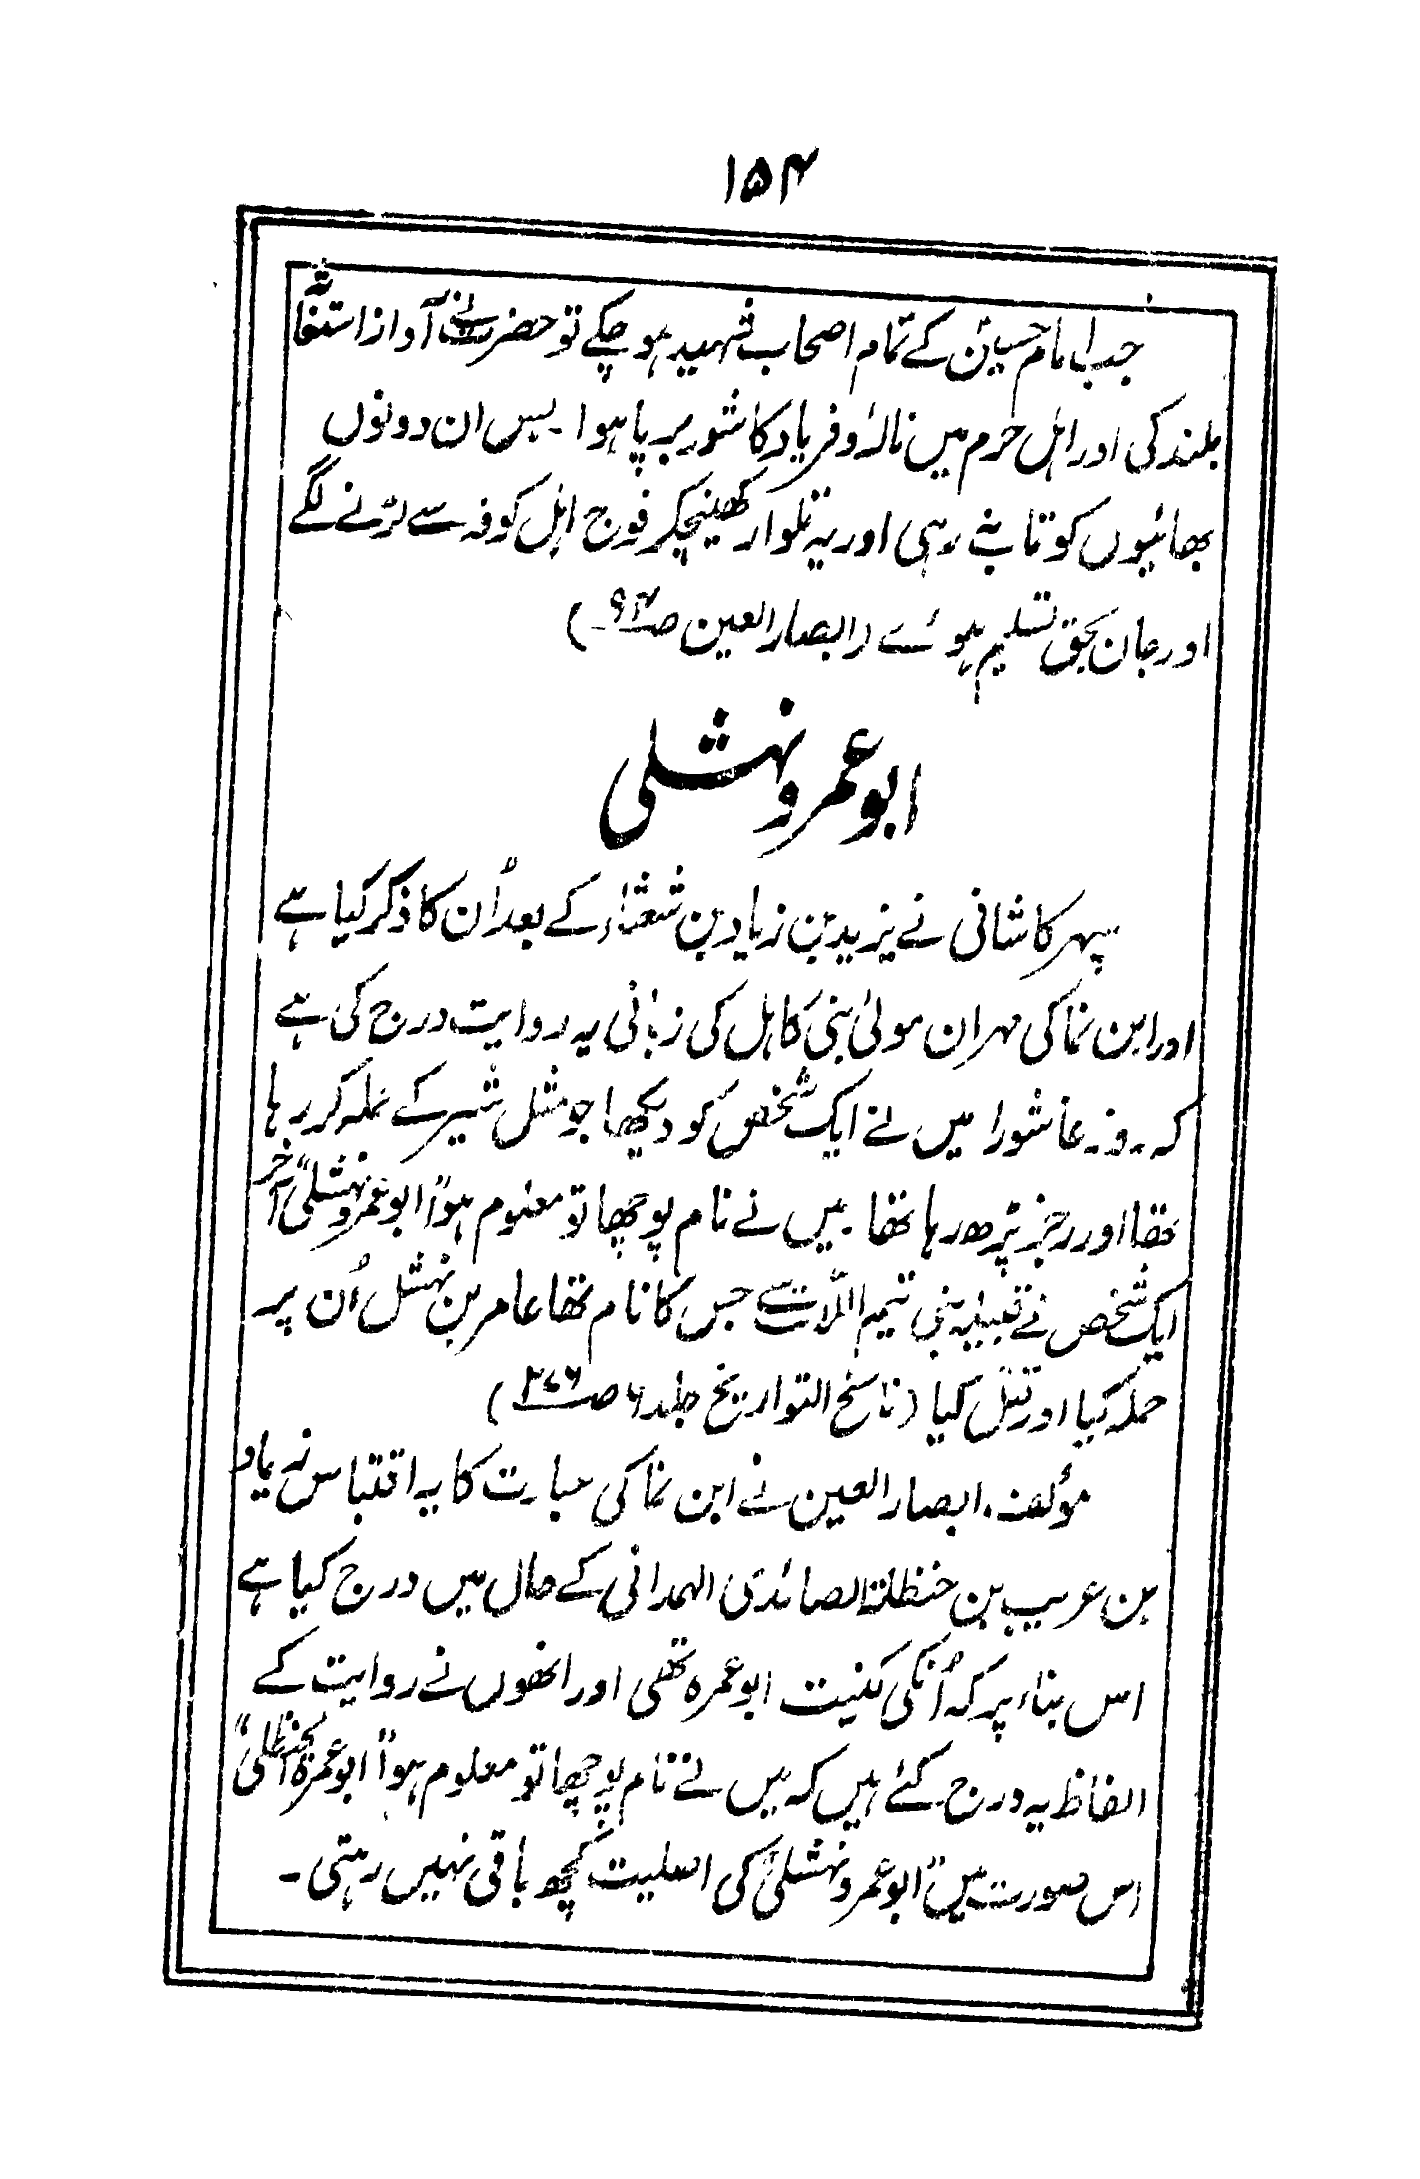 ۱۵۴
جب امام حسینؑ کے تمام اصحاب شہید ہو چکے تو حضرت نے آواز استغاثہ
بلند کی اور اہل حرم میں نالۂ و فریاد کا شور برپا ہوا۔ بس ان دونوں
بھائیوں کو تاب نہ رہی اور یہ تلوار کھینچکر فوج اہل کوفہ سے لڑنے لگے
اور جان بحق تسلیم ہوئے (ابصار العین ص۹۴)
ابو عمرو نہشلی
سپہر کاشانی نے یزید بن زیاد بن شعثاء کے بعد اُن کا ذکر کیا ہے
اور ابن نما کی مہران مولیٰ بنی کاہل کی زبانی یہ روایت درج کی ہے
کہ روز عاشورا میں نے ایک شخص کو دیکھا جو مثل شیر کے حملہ کر رہا
تھا اور رجز پڑھ رہا تھا۔ میں نے نام پوچھا تو معلوم ہوا "ابو عمرو نہشلی" آخر
ایک شخص نے قبیلہ بنی تیم اللات سے جس کا نام تھا عامر بن نہشل اُن پر
حملہ کیا اور قتل کیا (ناسخ التواریخ جلد ۶ ص۲۷۶)
مؤلف ابصار العین نے ابن نما کی عبارت کا یہ اقتباس زیاد
بن عریب بن حنظلۃ الصائدی الہمدانی کے حال میں درج کیا ہے
اس بناء پر کہ اُنکی کنیت ابو عمرہ تھی اور انھوں نے روایت کے
الفاظ یہ درج کئے ہیں کہ میں نے نام پوچھا تو معلوم ہوا "ابو عمرۃ الحنظلی"
اس صورت میں "ابو عمرو نہشلی" کی اصلیت کچھ باقی نہیں رہتی۔